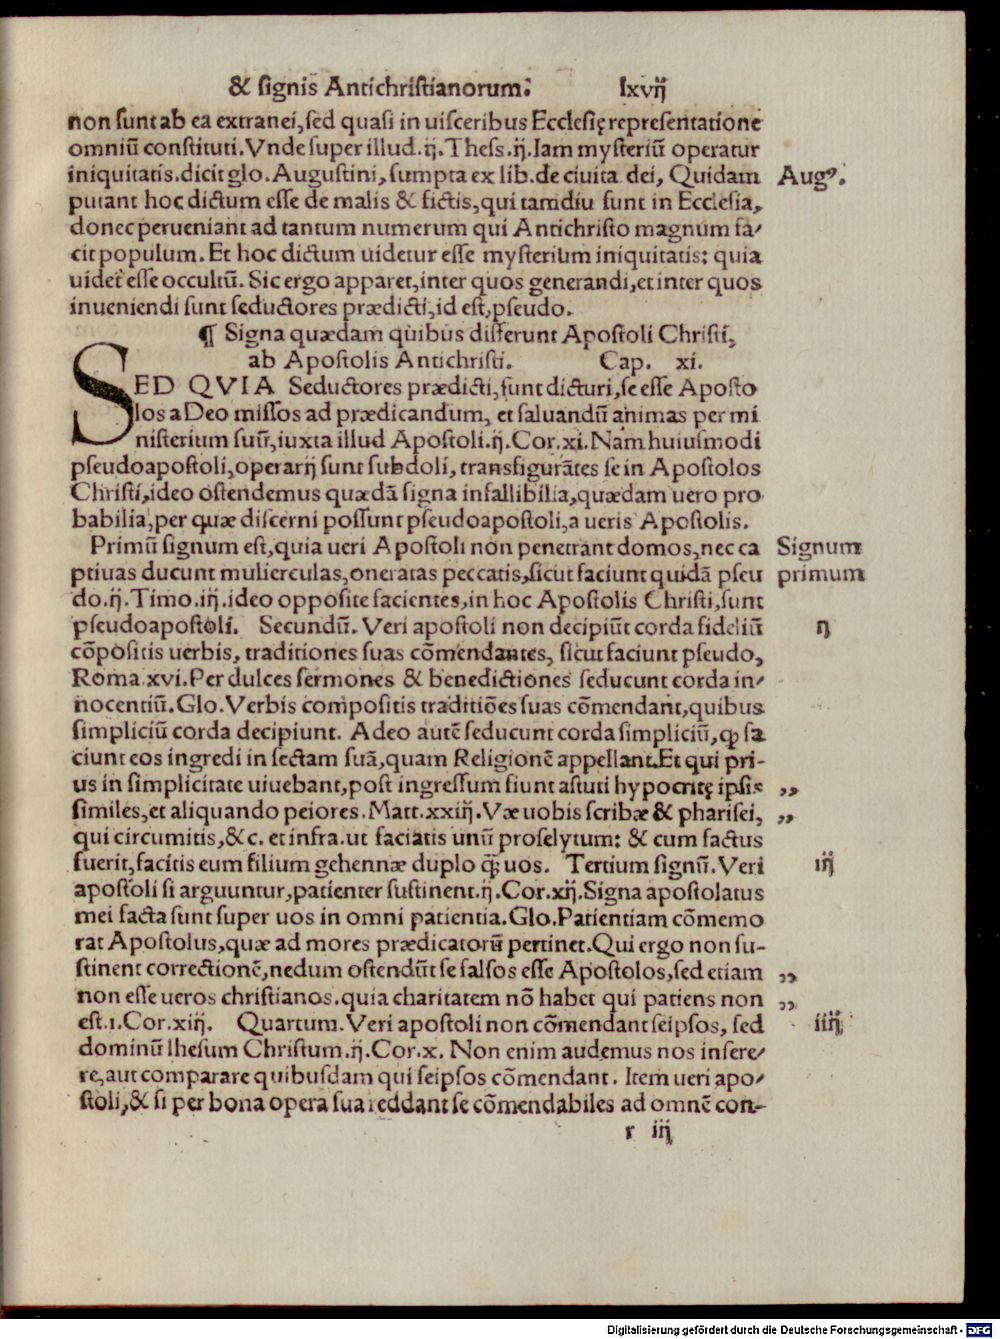 & signis Antichristianorum: lxvij
non sunt ab ea extranei, sed quasi in uisceribus Ecclesię representatione
omniū constituti. Vnde super illud .ij. Thess. ij. Iam mysteriū operatur
iniquitatis. dicit glo. Augustini, sumpta ex lib. de ciuita dei, Quidam Augꝰ.
putant hoc dictum esse de malis & fictis, qui tamdiu sunt in Ecclesia,
donec perueniant ad tantum numerum qui Antichristo magnum fa/
cit populum. Et hoc dictum uidetur esse mysterium iniquitatis: quia
uidet᷑ esse occultū. Sic ergo apparet, inter quos generandi, et inter quos
inueniendi sunt seductores prædicti, id est, pseudo.
¶ Signa quædam quibus differunt Apostoli Christi,
ab Apostolis Antichristi. Cap. xi.
SED QVIA Seductores prædicti, sunt dicturi, se esse Aposto
los a Deo missos ad prædicandum, et saluandū animas per mi
nisterium suū, iuxta illud Apostoli .ij. Cor. xi. Nam huiusmodi
pseudoapostoli, operarij sunt subdoli, transfigurātes se in Apostolos
Christi, ideo ostendemus quædā signa infallibilia, quædam uero pro
babilia, per quæ discerni possunt pseudoapostoli, a ueris Apostolis.
Primū signum est, quia ueri Apostoli non penetrant domos, nec ca Signum
ptiuas ducunt mulierculas, oneratas peccatis, sicut faciunt quidā pseu primum
do .ij. Timo. iij. ideo opposite facientes, in hoc Apostolis Christi, sunt
pseudoapostoli. Secundū. Veri apostoli non decipiūt corda fideliū ij
cōpositis uerbis, traditiones suas cōmendantes, sicut faciunt pseudo,
Roma. xvi. Per dulces sermones & benedictiones seducunt corda in/
nocentiū. Glo. Verbis compositis traditiōes suas cōmendant, quibus
simpliciū corda decipiunt. Adeo autē seducunt corda simpliciū, ꝙ fa
ciunt eos ingredi in sectam suā, quam Religionē appellant. Et qui pri-
us in simplicitate uiuebant, post ingressum fiunt astuti hypocritę ipsis ,,
similes, et aliquando peiores. Matt. xxiij. Væ uobis scribæ & pharisei, ,,
qui circumitis, &c. et infra. ut faciatis unū proselytum: & cum factus
fuerit, facitis eum filium gehennæ duplo ꝙ̄ uos. Tertium signū. Veri iij
apostoli si arguuntur, patienter sustinent .ij. Cor. xij. Signa apostolatus
mei facta sunt super uos in omni patientia. Glo. Patientiam cōmemo
rat Apostolus, quæ ad mores prædicatorū pertinet. Qui ergo non su-
stinent correctionē, nedum ostendūt se falsos esse Apostolos, sed etiam ,,
non esse ueros christianos. quia charitatem nō habet qui patiens non ,,
est. 1. Cor. xiij. Quartum. Veri apostoli non cōmendant seipsos, sed iiij
dominū Ihesum Christum .ij. Cor. x. Non enim audemus nos insere/
re, aut comparare quibusdam qui seipsos cōmendant. Item ueri apo/
stoli, & si per bona opera sua reddant se cōmendabiles ad omnē con-
r iij
Digitalisierung gefördert durch die Deutsche Forschungsgemeinschaft - DFG